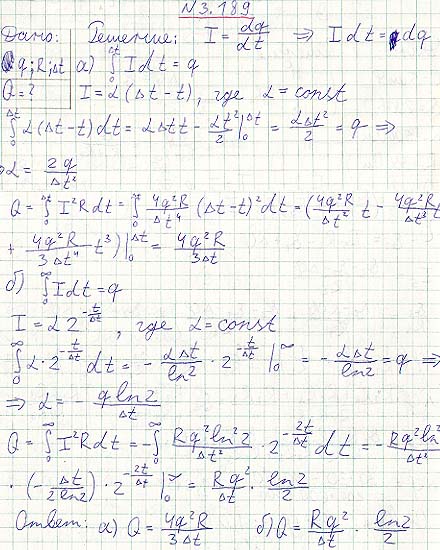 №3.189
Дано: Решение: I = dq/dt ⇒ I dt = dq
q; R; Δt а) ∫₀^Δt I dt = q
Q = ? I = α(Δt − t), где α = const
∫₀^Δt α(Δt − t)dt = αΔt t − αt²/2 |₀^Δt = αΔt²/2 = q ⇒
⇒ α = 2q/Δt²
Q = ∫₀^Δt I²R dt = ∫₀^Δt 4q²R/Δt⁴ (Δt − t)² dt = (4q²R/Δt² t − 4q²R/Δt³ t
+ 4q²R/3Δt⁴ t³) |₀^Δt = 4q²R/3Δt
б) ∫₀^∞ I dt = q
I = α 2^(−t/Δt), где α = const
∫₀^∞ α · 2^(−t/Δt) dt = − αΔt/ln2 · 2^(−t/Δt) |₀^∞ = − αΔt/ln2 = q ⇒
⇒ α = − q ln2/Δt
Q = ∫₀^∞ I²R dt = −∫₀^∞ Rq² ln²2/Δt² · 2^(−2t/Δt) dt = − Rq² ln²/Δt²
· (− Δt/2 ln2) · 2^(−2t/Δt) |₀^∞ = Rq²/Δt · ln2/2
Ответ: а) Q = 4q²R/3Δt б) Q = Rq²/Δt · ln2/2